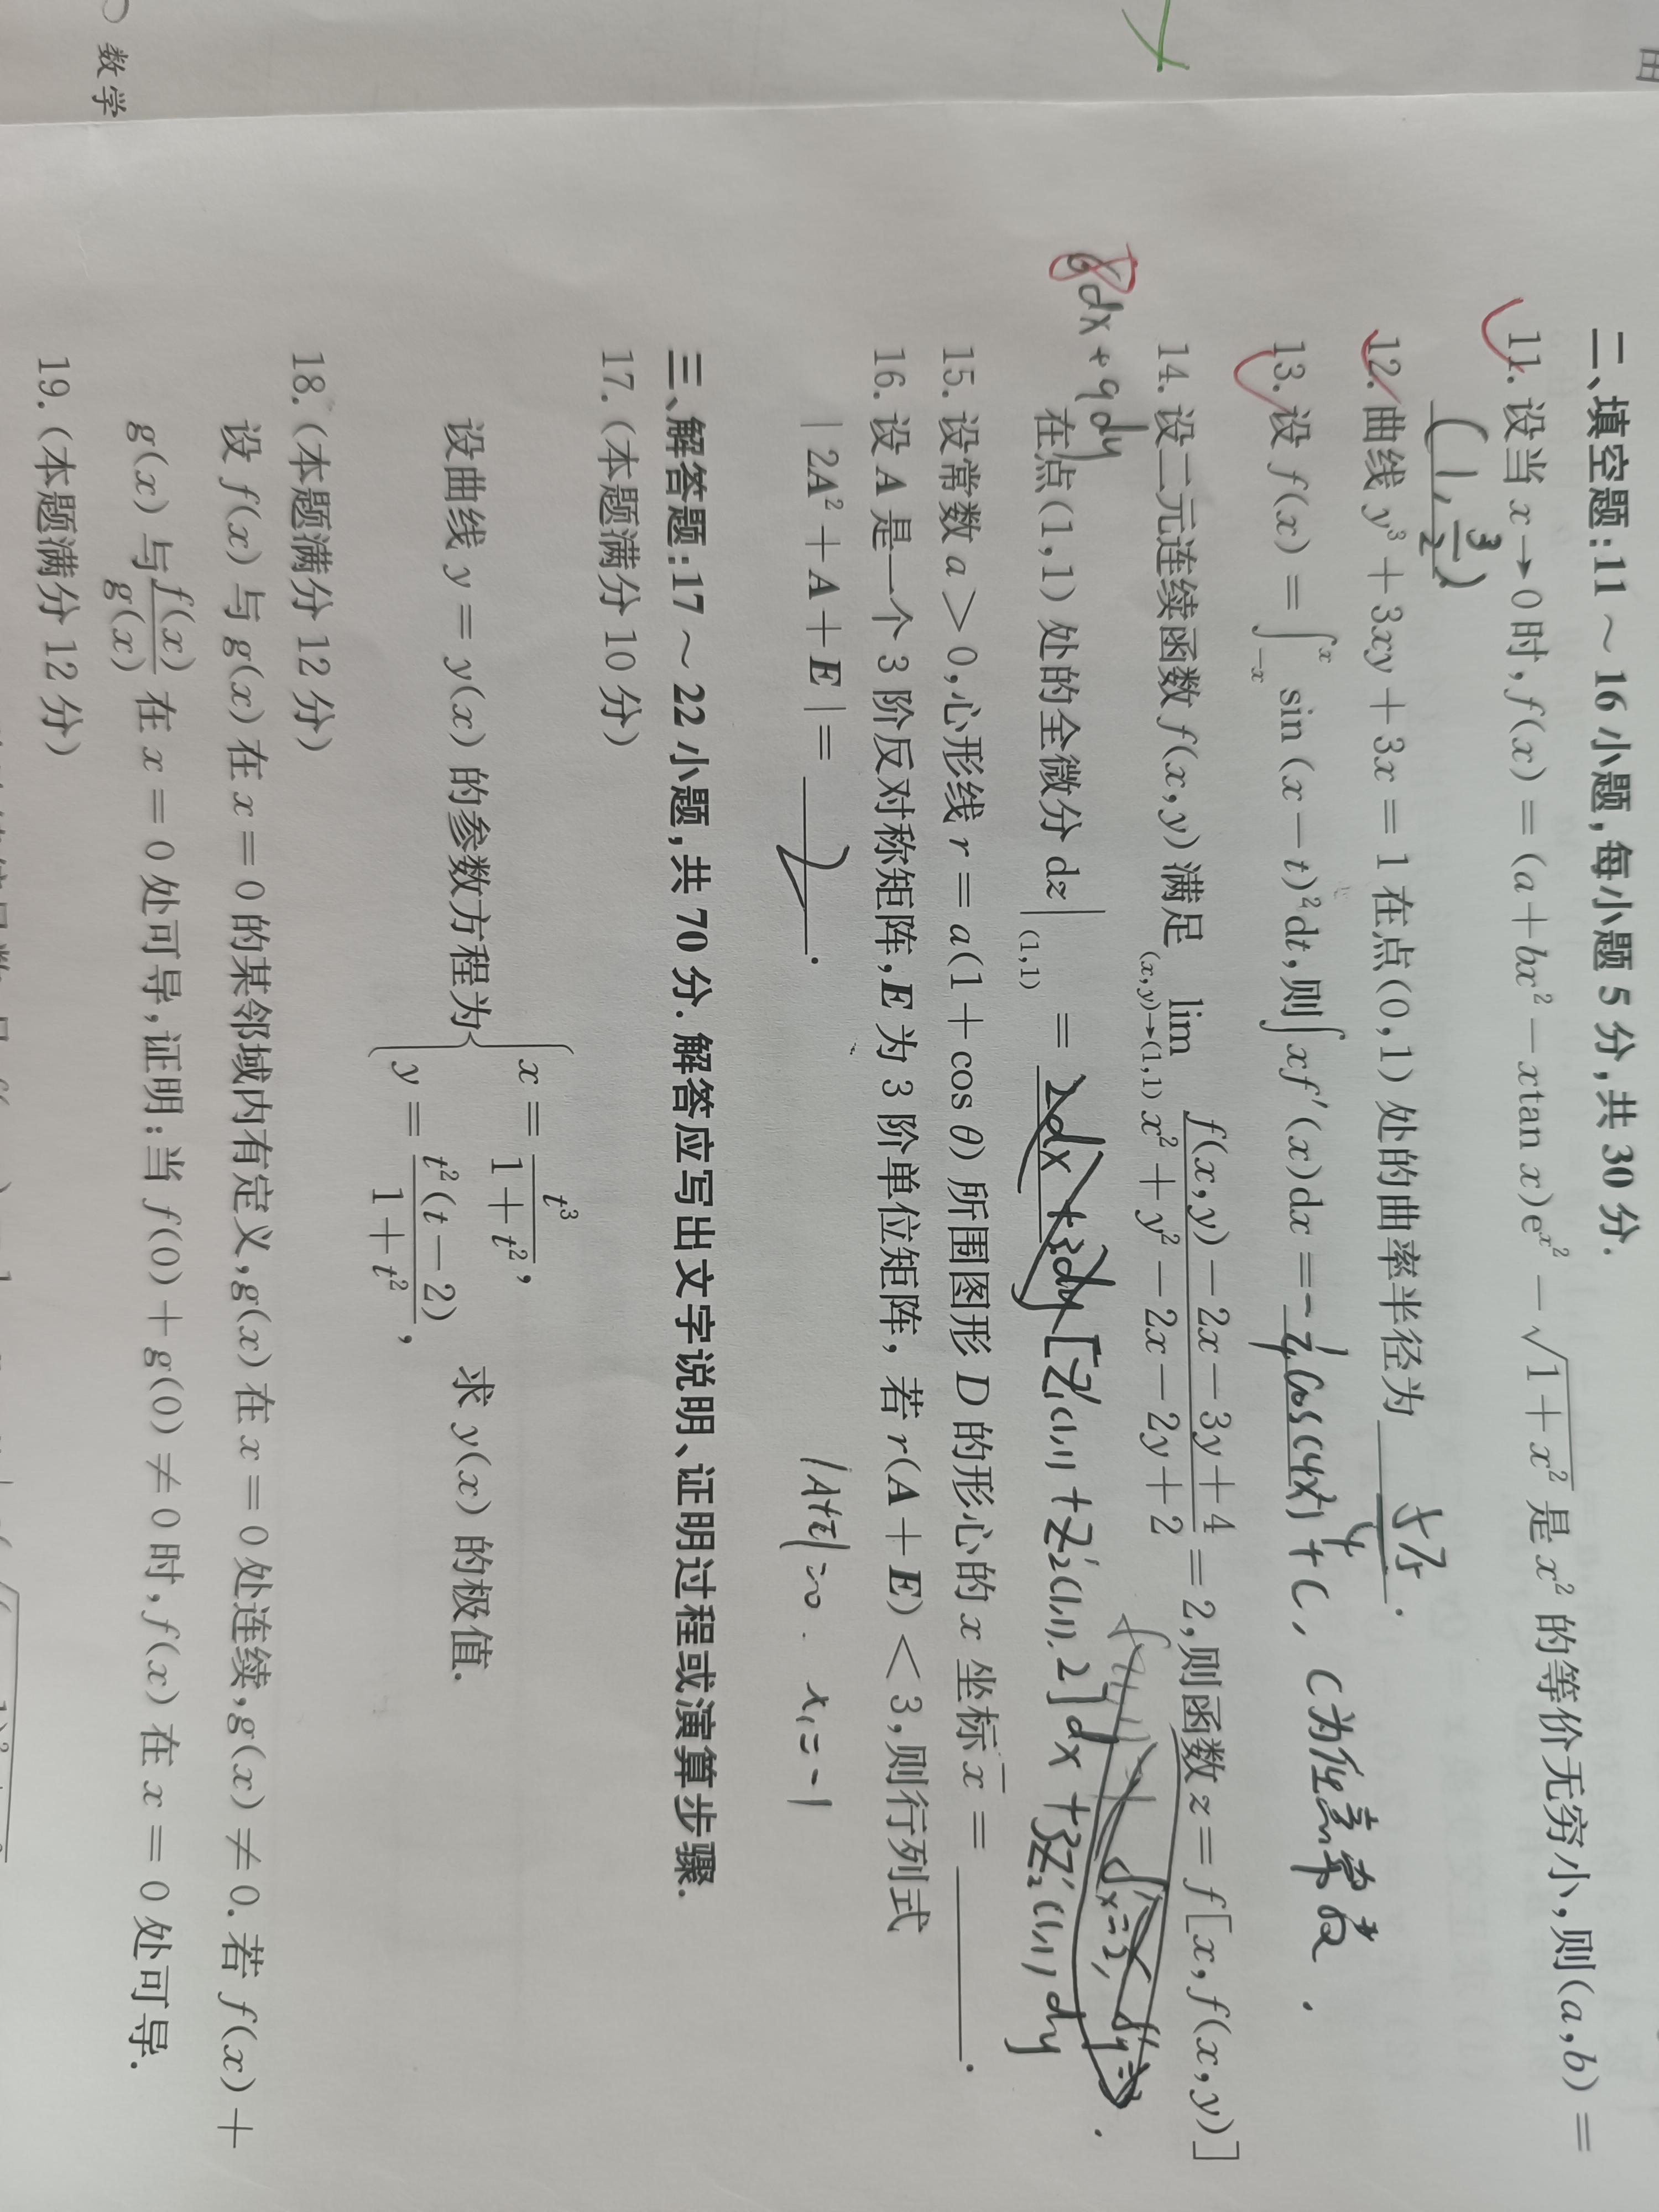 二、填空题:11～16小题,每小题5分,共30分.
11. 设当x→0时,f(x)=(a+bx²-xtan x)e^{x²}-√(1+x²)是x²的等价无穷小,则(a,b)=
(1, 3/2)
12. 曲线y³+3xy+3x=1在点(0,1)处的曲率半径为
13. 设f(x)=∫_{-x}^{x} sin(x-t)²dt,则∫xf′(x)dx=-1/4 cos(4x²)+C, C为任意常数.
14. 设二元连续函数f(x,y)满足 lim_{(x,y)→(1,1)} (f(x,y)-2x-3y+4)/(x²+y²-2x-2y+2)=2,则函数z=f[x,f(x,y)]
在点(1,1)处的全微分dz|_{(1,1)}=2dx+3dy [Z₁′(1,1)+Z₂′(1,1)·2]dx+3Z₂′(1,1)dy.
dx+9dy
15. 设常数a>0,心形线r=a(1+cos θ)所围图形D的形心的x坐标x̄=.
16. 设A是一个3阶反对称矩阵,E为3阶单位矩阵,若r(A+E)<3,则行列式
|2A²+A+E|=.
|A+E|=0. λ₁=-1
三、解答题:17～22小题,共70分.解答应写出文字说明、证明过程或演算步骤.
17.(本题满分10分)
设曲线y=y(x)的参数方程为{x=t³/(1+t²), y=t²(t-2)/(1+t²), 求y(x)的极值.
18.(本题满分12分)
设f(x)与g(x)在x=0的某邻域内有定义,g(x)在x=0处连续,g(x)≠0.若f(x)+
g(x)与f(x)/g(x)在x=0处可导,证明:当f(0)+g(0)≠0时,f(x)在x=0处可导.
19.(本题满分12分)
数学